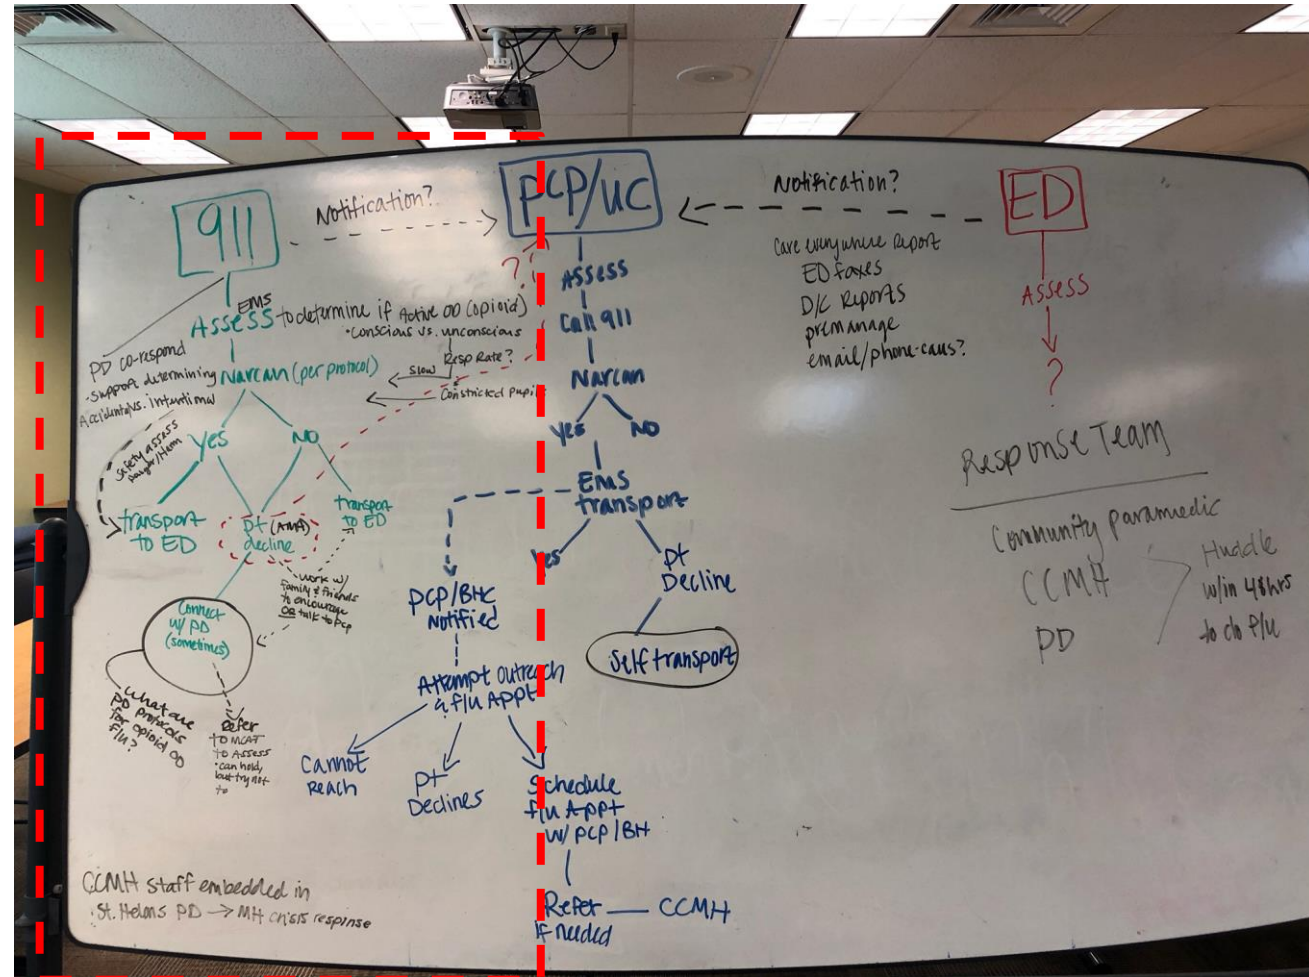 911
Notification?
PCP/UC
Notification?
ED
EMS
Assess to determine if Active OD (opioid)
• Conscious vs. unconscious
Resp Rate?
slow
Constricted Pupils
?
PD co-respond
- Support determining
Accidental vs. intentional
Narcan (per protocol)
Yes
NO
Safety assess
transport
to ED
pt (AMA)
decline
transport
to ED
work w/
family & friends
to encourage
OR talk to pcp
Connect
w/ PD
(sometimes)
what are
PD protocols
for opioid OD
f/u?
Refer
to MCAT
to Assess
• can hold,
but try not
to
CCMH staff embedded in
St. Helens PD → MH crisis response
Assess
Call 911
Narcan
Yes
NO
EMS
transport
Yes
pt
Decline
Self transport
PCP/BHC
Notified
Attempt outreach
& f/u Appt
Cannot
Reach
pt
Declines
Schedule
f/u Appt
w/ PCP/BH
Refer
if needed
CCMH
Care everywhere Report
ED faxes
D/C Reports
premanage
email/phone-calls?
Assess
?
Response Team
Community paramedic
CCMH
PD
Huddle
w/in 48hrs
to do f/u